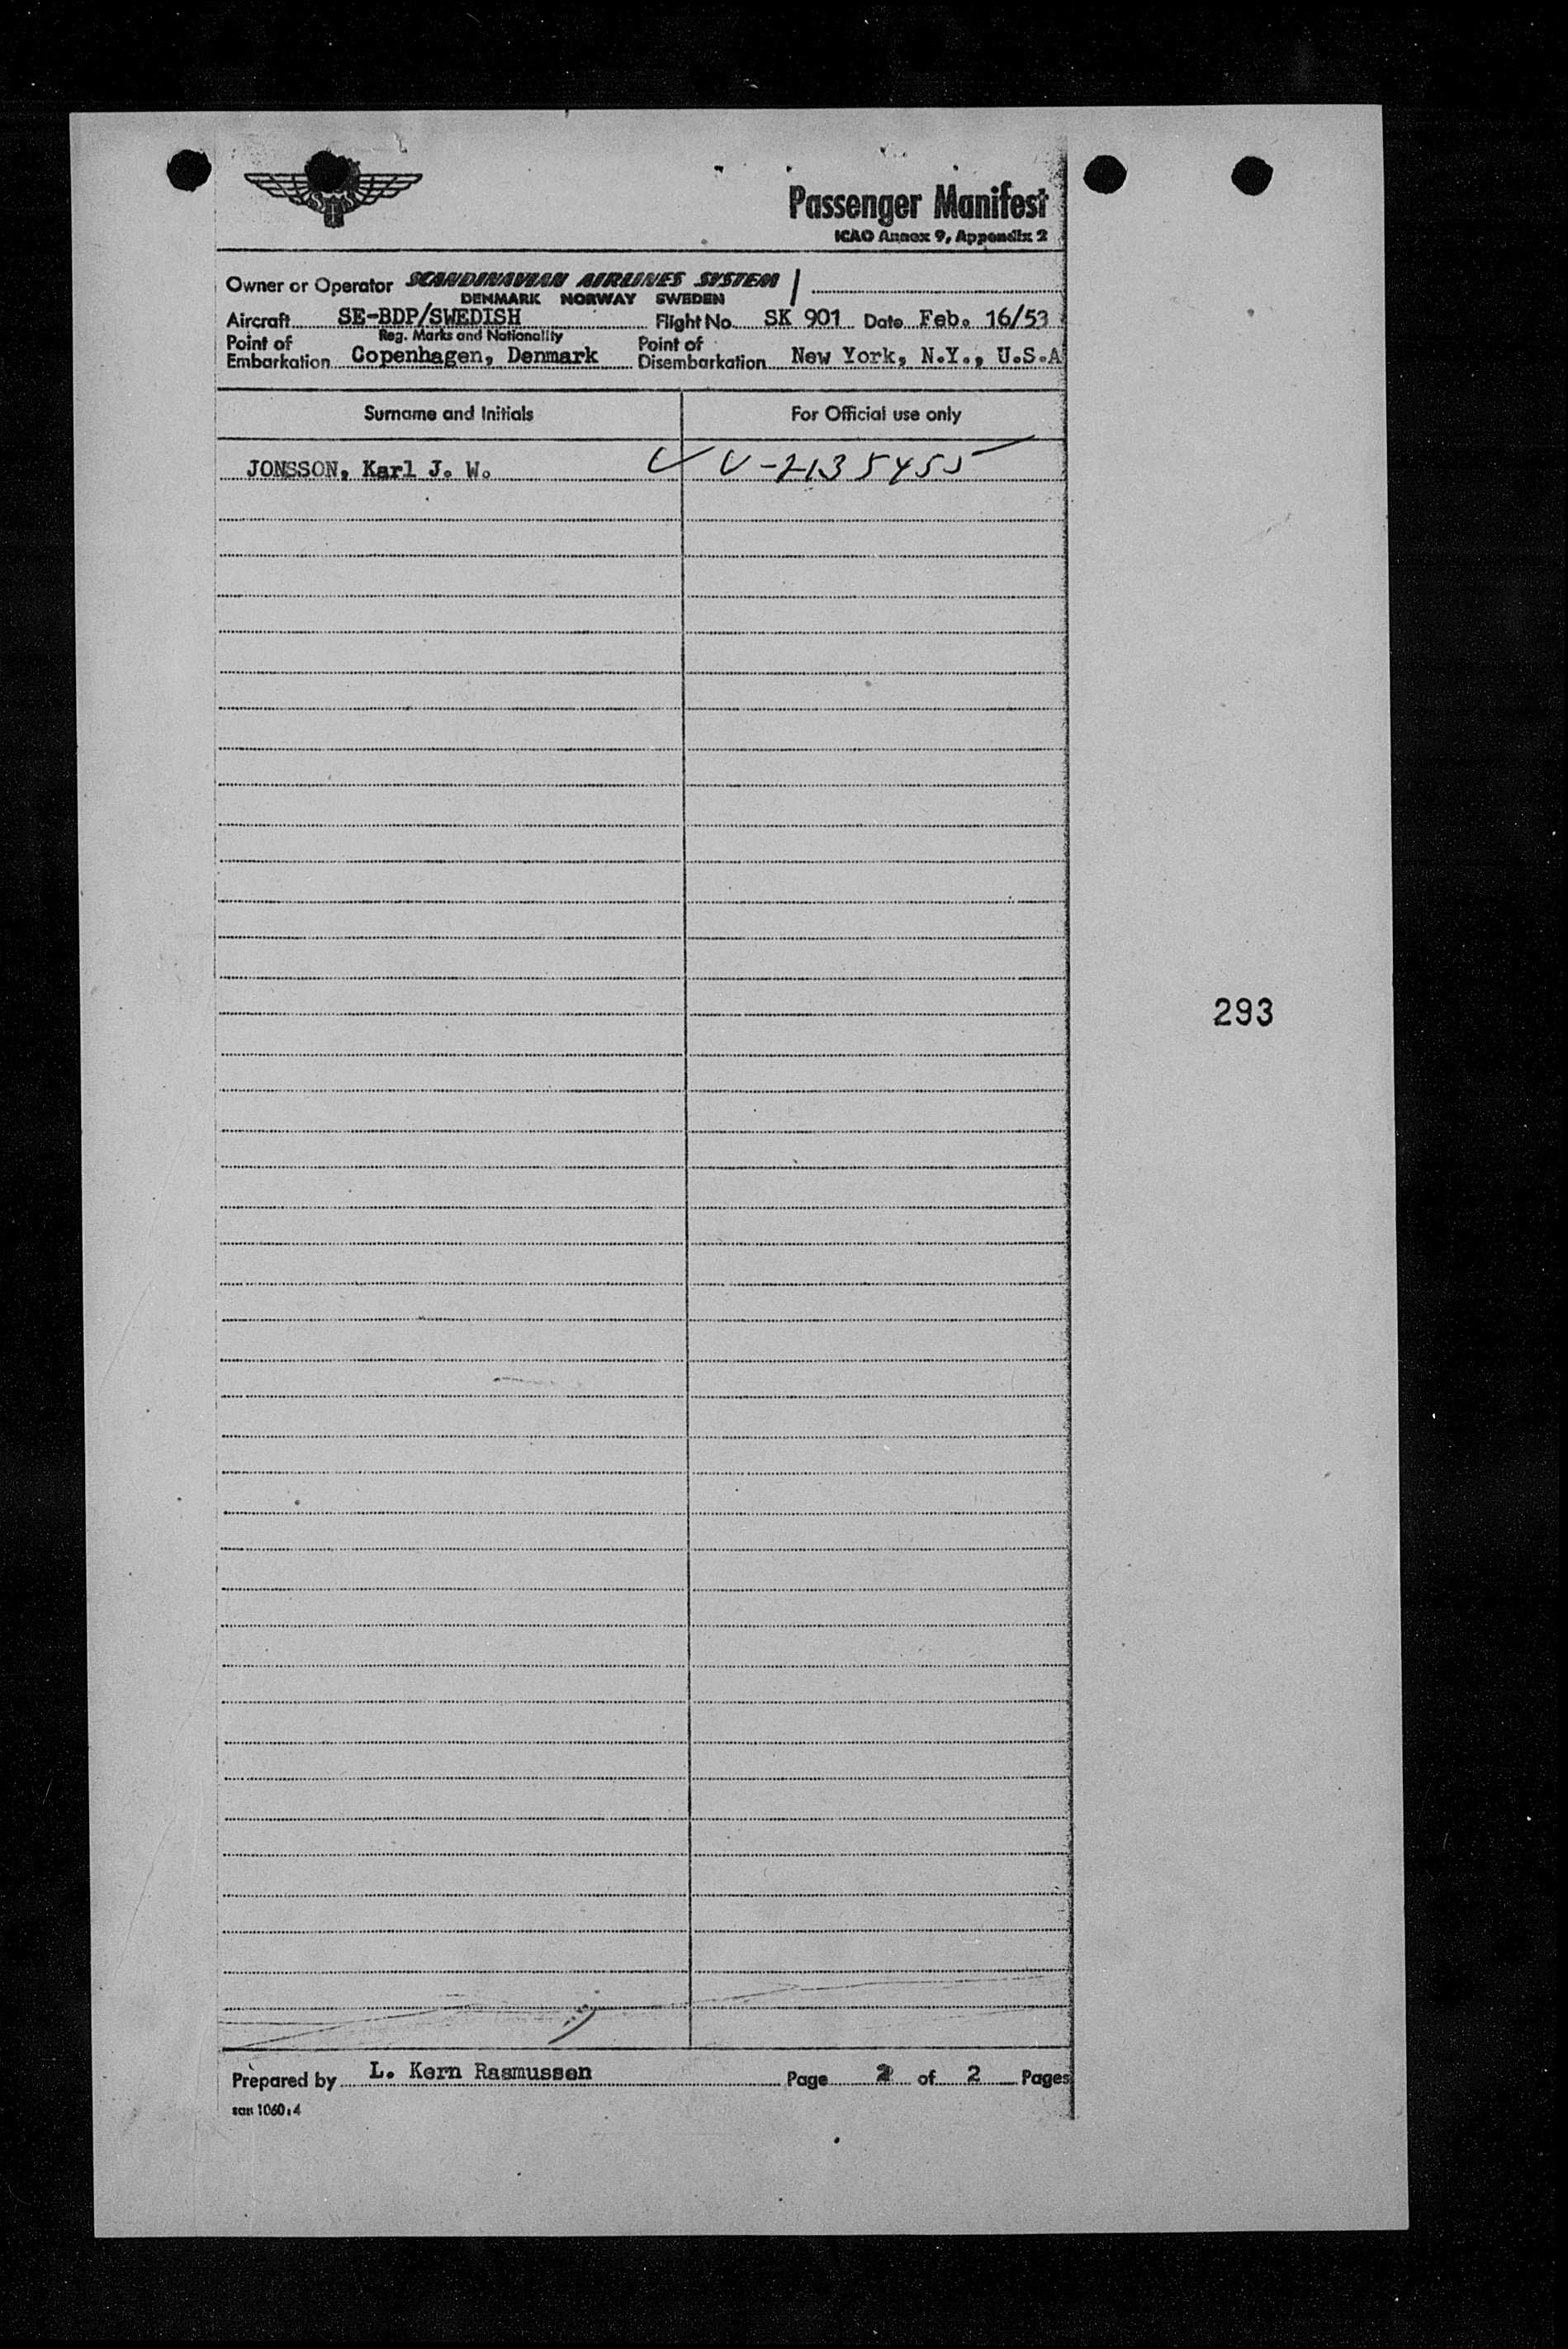 SAS
Passenger Manifest
ICAO Annex 9, Appendix 2
Owner or Operator SCANDINAVIAN AIRLINES SYSTEM
DENMARK NORWAY SWEDEN
Aircraft SE-BDP/SWEDISH Flight No. SK 901 Date Feb. 16/53
Reg. Marks and Nationality
Point of Embarkation Copenhagen, Denmark Point of Disembarkation New York, N.Y., U.S.A
Surname and Initials For Official use only
JONSSON, Karl J. W. V-2135455
293
Prepared by L. Kern Rasmussen Page 2 of 2 Pages
san 1060:4